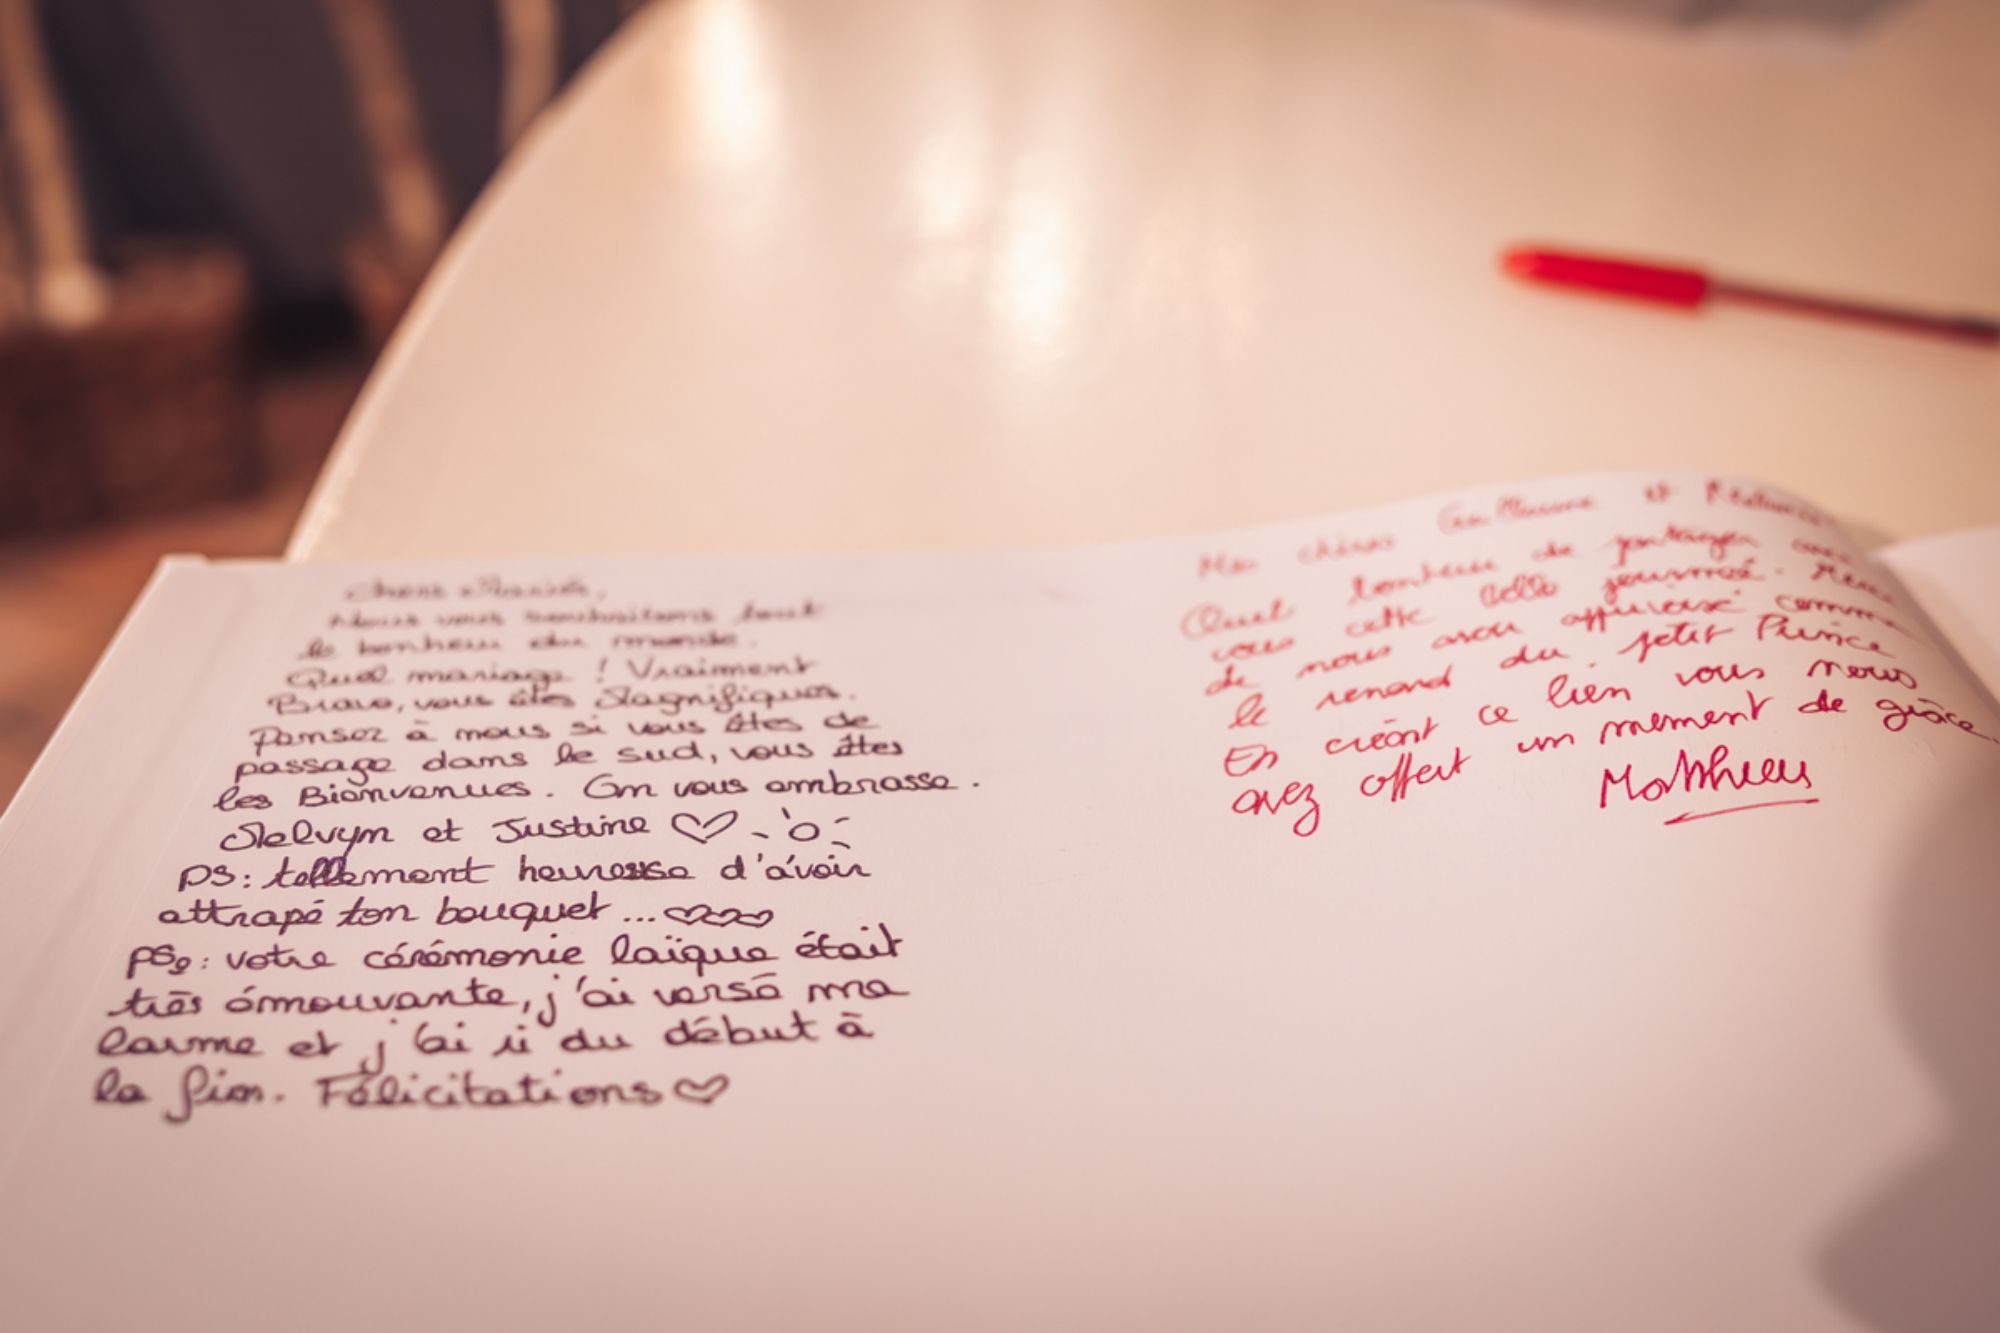 Chers Mariés,
Nous vous souhaitons tout
le bonheur du monde.
Quel mariage ! Vraiment
Bravo, vous êtes Magnifiques.
Pensez à nous si vous êtes de
passage dans le sud, vous êtes
les Bienvenues. On vous embrasse.
Melvyn et Justine
PS: tellement heureuse d'avoir
attrapé ton bouquet ...
PS2: votre cérémonie laïque était
très émouvante, j'ai versé ma
larme et j'ai ri du début à
la fin. Félicitations
Mes chères Guillaume et
Quel bonheur de partager avec
vous cette belle journée. Merci
de nous avoir apprivoisé comme
le renard du petit Prince
En créant ce lien vous nous
avez offert un moment de grâce.
Matthieu